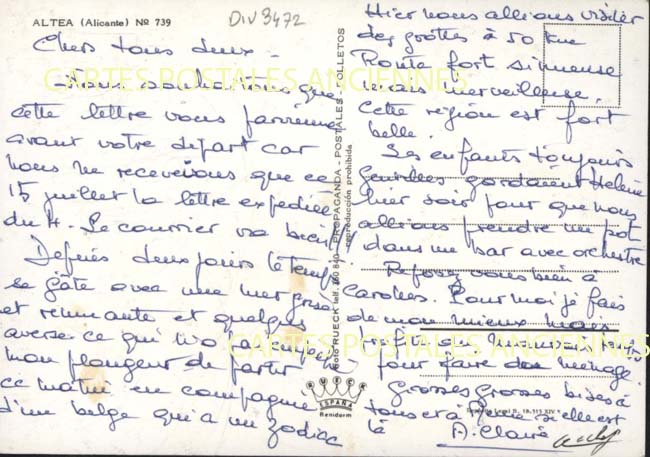 ALTEA (Alicante) Nº 739
DIV 3472
Chers tous deux -
Nous souhaitons que
cette lettre vous parvienne
avant votre départ car
nous ne recevions que ce
15 juillet la lettre expédiée
du 4. Le courrier va bien
Depuis deux jours le temps
se gâte avec une mer grise
et remuante et quelques
averse ce qui n'a
mon plongeur de partir
ce matin en compagnie
d'un belge qui a un zodiac
Hier nous allions visiter
des grottes à 50 km
Route fort sinueuse
mais merveilleuse.
Cette région est fort
belle.
Les enfants toujours
gardaient Helène
hier soir pour que nous
allions prendre un pot
dans un bar avec orchestre
Reposez vous bien à
Carolles. Pour moi je fais
de mon mieux mais
pour faire de ménage
Grosses Grosses bises à
tous et à si elle est
là A. Claire
RUECK PROPAGANDA - POSTALES - FOLLETOS
reproducción prohibida
RUECK
ESPAÑA
Benidorm
CARTES POSTALES ANCIENNES
CARTES POSTALES ANCIENNES